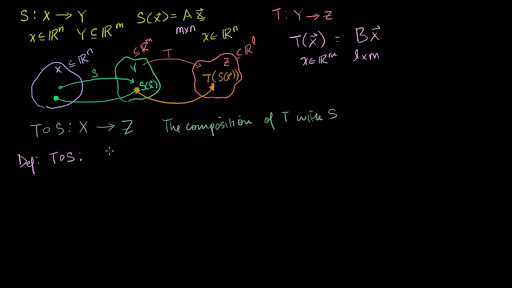 S: X → Y   S(x⃗) = A x⃗   T: Y → Z
x ⊆ ℝⁿ   Y ⊆ ℝᵐ   m×n   x ∈ ℝⁿ   T(x⃗) = B x⃗
x ∈ ℝᵐ   l×m
X ⊆ ℝⁿ   S   Y ⊆ ℝᵐ   S(x⃗)   T   Z ⊆ ℝˡ   T(S(x⃗))
T∘S: X → Z   The composition of T with S
Def: T∘S: